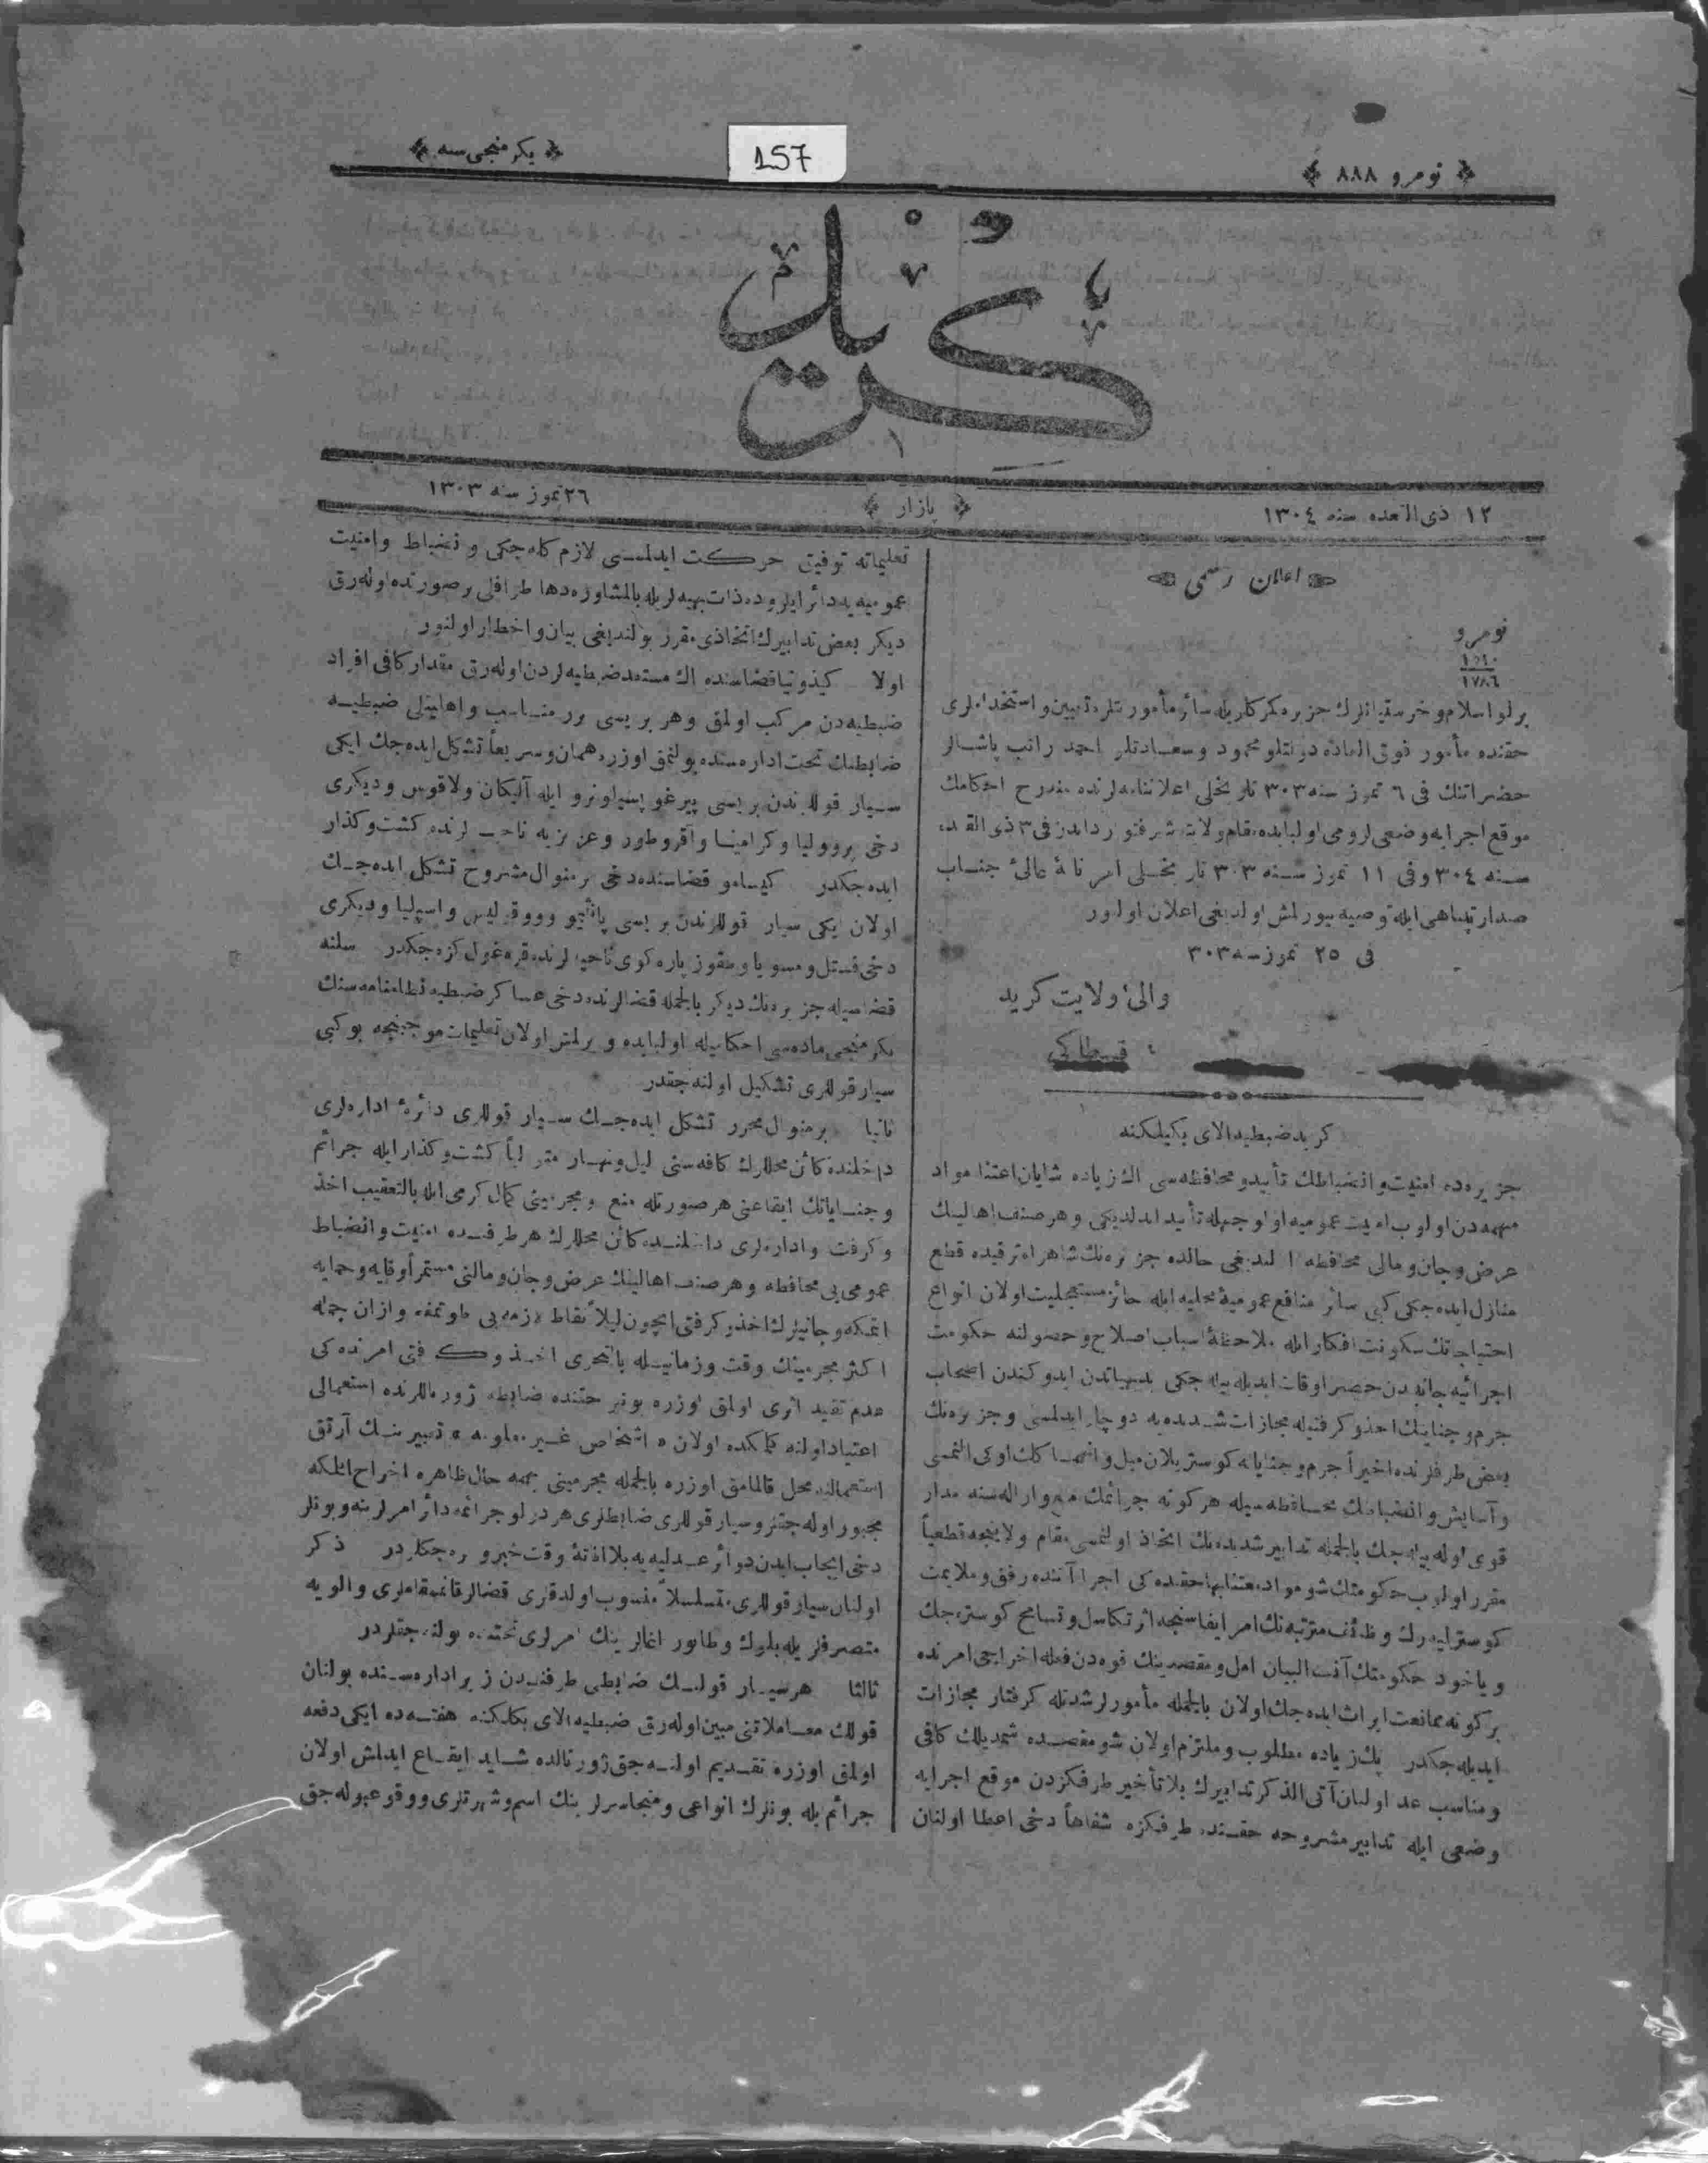 نومرو ٨٨٨
157
يكرمنجى سنه
كريد
١٢ ذى القعده سنه ١٣٠٤
پازار
٢٦ تموز سنه ١٣٠٣
اعلان رسمى
نومرو
١٧٨٦
برلو اسلام و خرستيانلرك جزيره مكركاريله سائر مأمورتلره تعيين و استخداملرى
حقنده مأمور فوق العاده دولتلو محمود و سعادتلو احمد راتب پاشالر
حضراتنك فى ٦ تموز سنه ٣٠٣ تاريخلى اعلاننامه لرنده مندرج احكامك
موقع اجرايه وضعى لزومى اولبابده مقام ولايته شرفوارد ايدن فى ٣ ذى القعده
سنه ٣٠٤ وفى ١١ تموز سنه ٣٠٣ تاريخلى امرنامهٔ عالىٔ جناب
صدارتپناهى ايله توصيه بيورلمش اولديغى اعلان اولنور
فى ٢٥ تموز سنه ٣٠٣
والىٔ ولايت كريد
كريد ضبطيه الاى بكيلكنه
جزيره ده امنيت و انضباطك تأييد و محافظه سى الك زياده شايان اعتنا مواد
مهمه دن اولوب امنيت عموميه اولوجهله تأييد ايدلديكى و هر صنف اهالينك
عرض و جان و مالى محافظه اولنديغى حالده جزيره نك شاهراه ترقيده قطع
منازل ايده جكى كبى سائر منافع عموميهٔ محليه ايله حائز مستعجليت اولان انواع
احتياجاتك سكونت افكار ايله ملاحظهٔ اسباب اصلاح و حصولنه حكومت
اجرائيه جانبدن حصر اوقات ايديله بيله جكى بديهياتدن ايدوكندن اصحاب
جرم و جنايتك اخذ و كرفتيله مجازات شديده يه دوچار ايدلمسى و جزيره نك
بعض طرفلرنده اخيراً جرم و جنايانه كوستريلان ميل و انهماكك اوكى النمسى
و آسايش و انضباطك محافظه سيله هركونه جرائمك منع و ازاله سنه مدار
قوى اوله بيله جك بالجمله تدابير شديده نك اتخاذ اولنمسى مقام ولايتجه قطعياً
مقرر اولوب حكومتك شو مواد معتنابها حقنده كى اجراآتنده رفق و ملايمت
كوستريله رك وظائف مترتبه نك امر ايفاسنجه اثر تكاسل و تسامح كوستره جك
و ياخود حكومتك آنف البيان امل و مقصدينك قوه دن فعله اخراجى امرنده
بركونه ممانعت ايراث ايده جك اولان بالجمله مأمورلر شدتله كرفتار مجازات
ايديله جكدر پك زياده مطلوب و ملتزم اولان شو مقصده شمديلك كافى
و مناسب عد اولنان آتى الذكر تدابيرك بلا تأخير طرفكزدن موقع اجرايه
وضعى ايله تدابير مشروحه حقنده طرفكزه شفاهاً دخى اعطا اولنان
تعليماته توفيق حركت ايدلمسى لازم كله جكى و انضباط و امنيت
عموميه يه دائر ايلروده ذات بهيه لريله بالمشاوره دها طرافلى برصورتده اوله رق
ديكر بعض تدابيرك اتخاذى مقرر بولنديغى بيان و اخطار اولنور
اولا كيدونيا قضاسنده الك مستعد ضبطيه لردن اوله رق مقدار كافى افراد
ضبطيه دن مركب اولمق و هر بريسى برر مناسب و اهليتلى ضبطيه
ضابطنك تحت اداره سنده بولنمق اوزره همان و سريعاً تشكل ايده جك ايكى
سيار قوللرندن بريسى پيرغو پسيلونرو ايله آليكيان و لاقوس و ديكرى
دخى پرووليا و كراميا و آقروطور و عزيزيه ناحيه لرنده كشت و كذار
ايده جكدر كيسامو قضاسنده دخى برمنوال مشروح تشكل ايده جك
اولان ايكى سيار قوللرندن بريسى و ديكرى
قضاسيله جزيره نك ديكر بالجمله قضالرنده دخى عساكر ضبطيه نظامنامه سنك
يكرمنجى ماده سى احكاميله اولبابده ويرلمش اولان تعليمات موجبنجه بو كبى
سيار قوللرى تشكيل اولنه جقدر
ثانيا برمنوال محرر تشكل ايده جك سيار قوللرى دائرهٔ اداره لرى
داخلنده كائن محللرك كافه سنى ليل و نهار متوالياً كشت و كذار ايله جرائم
و جناياتك ايقاعنى هر صورتله منع و مجرمينى كمال كرمى ايله بالتعقيب اخذ
و كرفت و اداره لرى داخلنده كائن محللرك هر طرفنده امنيت و انضباط
عمومى يى محافظه و هر صنف اهالينك عرض و جان و مالنى مستمراً وقايه و حمايه
اتمكه و جانيلرك اخذ و كرفتى ايچون ليلاً نقاط لازمه يى طوتمغه و ازان جمله
اكثر مجرمينك وقت و زمانيله بالتحرى اخذ و كرفتى امرنده كى
عدم تقيد اثرى اولمق اوزره بونلر حقنده ضابطه ژورناللرنده استعمالى
اعتياد اولنه كلمكده اولان « اشخاص غير معلومه » تعبيرينك آرتق
استعمالنه محل قالمامق اوزره بالجمله مجرمينى بهمه حال ظاهره اخراج ايتمكه
مجبور اوله جقلر و سيار قوللرى ضابطلرى هر درلو جرائمه دائر امرلرينه و بونلر
دخى ايجاب ايدن دوائر عدليه يه بلا افاتهٔ وقت خبر ويره جكلردر ذكر
اولنان سيار قوللرى متسلسلاً منسوب اولدقلرى قضالر قائمقاملرى و الويه
متصرفلريله بلوك و طابور اغالرينك امرلرى تحتنده بولنه جقلردر
ثالثا هر سيار قولنك ضابطى طرفندن زير اداره سنده بولنان
قولك معاملاتنى مبين اوله رق ضبطيه الاى بكلكنه هفته ده ايكى دفعه
اولمق اوزره تقديم اولنه جق ژورنالده شايد ايقاع ايدلمش اولان
جرائم ايله بونلرك انواعى و متجاسرلرينك اسم و شهرتلرى و وقوعبوله جق